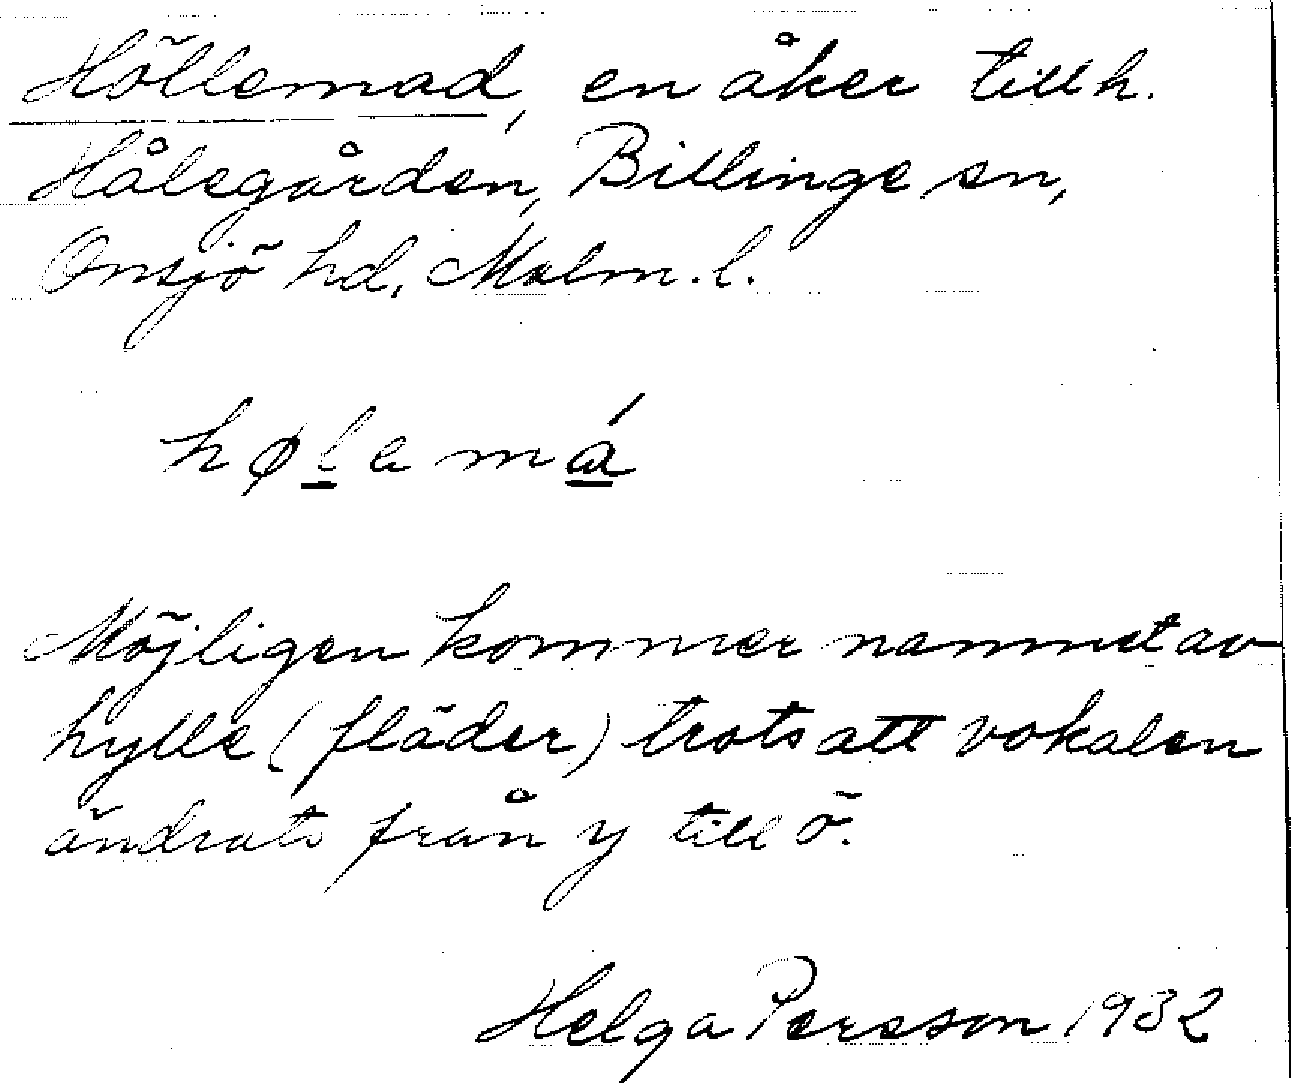 Höllemad, en åker tillh.
Hålsgården, Billinge sn,
Onsjö hd, Malm. l.
høl̲emá̲
Möjligen kommer namnet av
hylle (fläder) trots att vokalen
ändrats från y till ö.
Helga Persson 1932